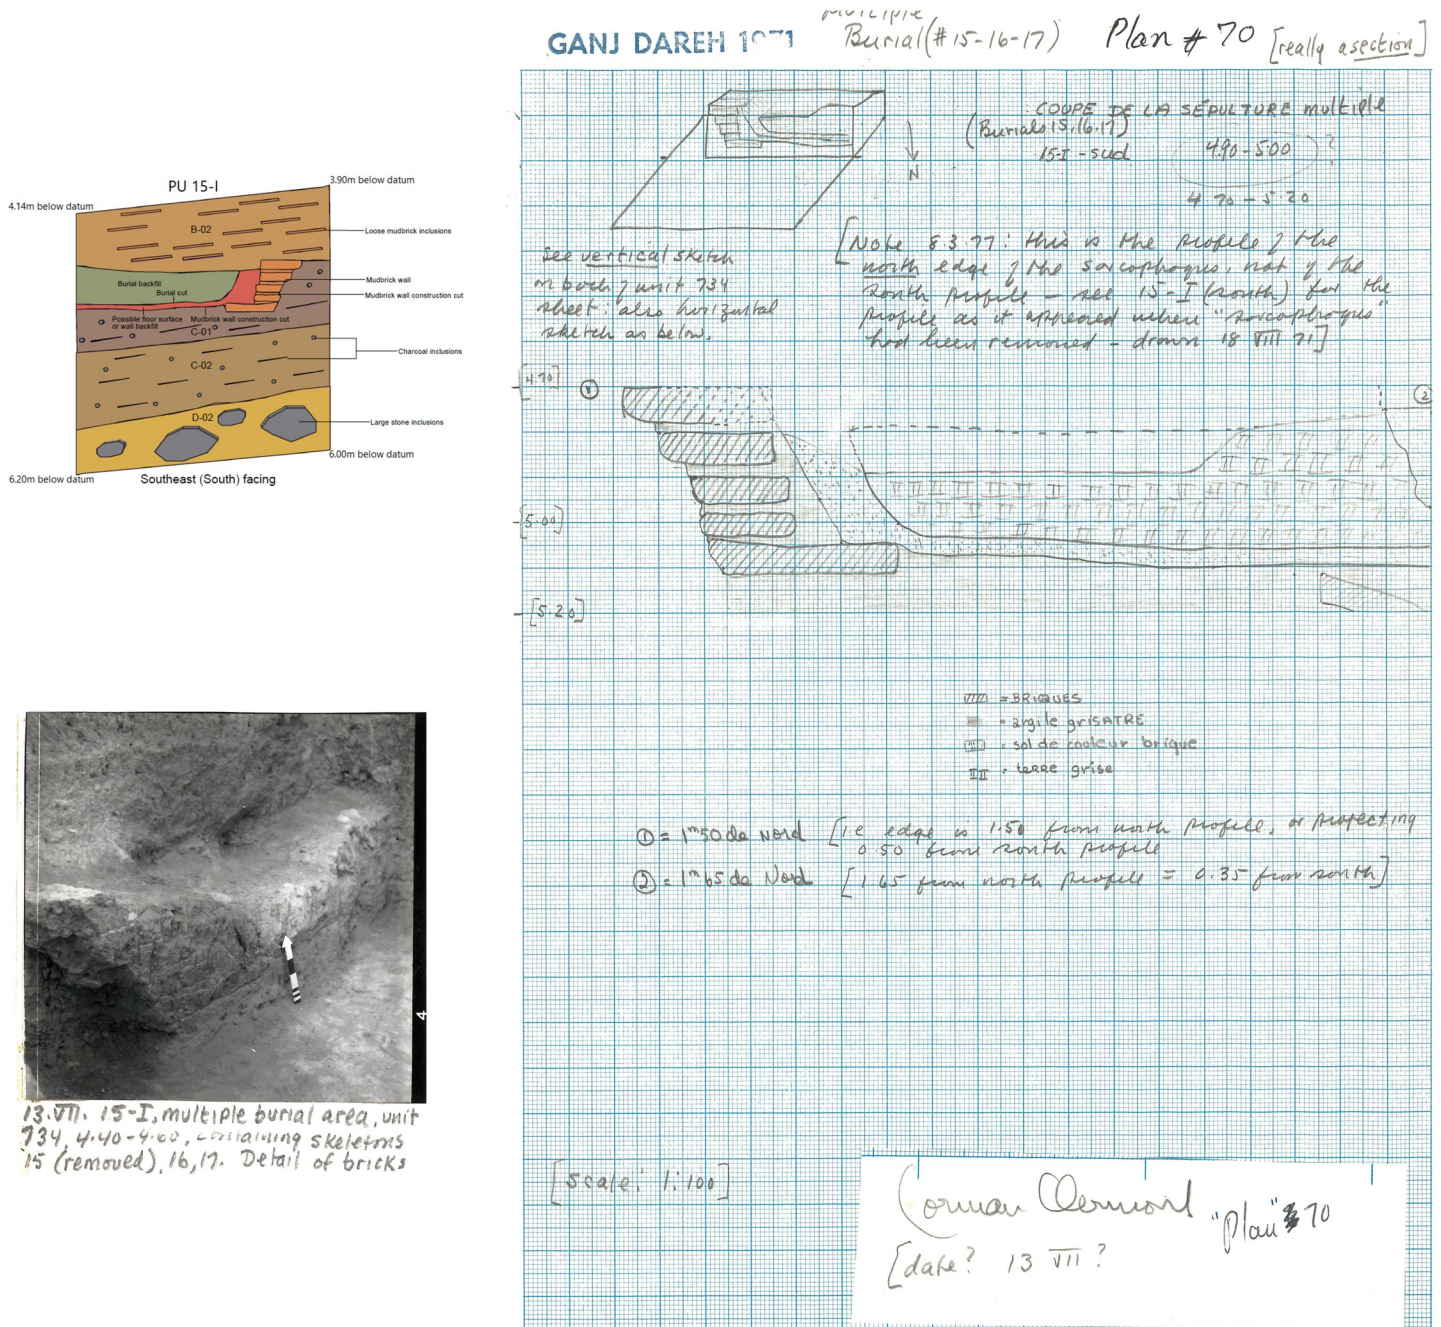 PU 15-I
3.90m below datum
4.14m below datum
B-02
Loose mudbrick inclusions
Burial backfill
Burial cut
Mudbrick wall
Mudbrick wall construction cut
Possible floor surface
or wall backfill
Mudbrick wall construction cut
C-01
Charcoal inclusions
C-02
D-02
Large stone inclusions
6.00m below datum
6.20m below datum
Southeast (South) facing
4
13.VII. 15-I, multiple burial area, unit
734, 4.40-4.60, containing skeletons
15 (removed), 16, 17. Detail of bricks
GANJ DAREH 1971
Multiple
Burial (#15-16-17)
Plan # 70 [really a section]
COUPE DE LA SÉPULTURE multiple
(Burials 15, 16, 17)
15-I - sud
4.90-5.00 ?
4.70-5.20
N
See vertical sketch
on back of unit 734
sheet: also horizontal
sketch as below.
[Note 8.3.77: this is the profile of the
north edge of the sarcophagus, not of the
south profile - see 15-I (south) for the
profile as it appeared where "sarcophagus"
had been removed - drawn 18 VIII 71]
[4.70]
1
2
[5.00]
[5.20]
= BRIQUES
= argile GRISATRE
= sol de couleur brique
II = terre grise
① = 1m50 de Nord [ie edge is 1.50 from north profile, or projecting
0.50 from south profile
② = 1m65 de Nord [1.65 from north profile = 0.35 from south]
[Scale: 1:100]
Norman Clermont
"Plan" # 70
[date? 13 VII ?